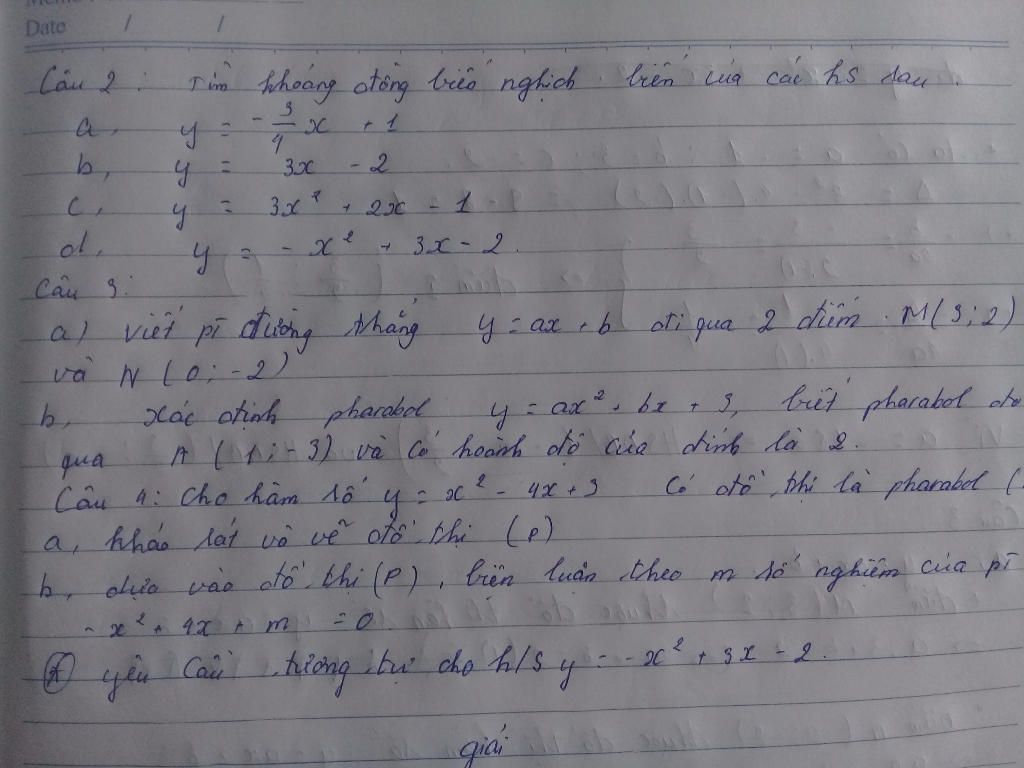 Date / /
Câu 2 : Tìm khoảng đồng biến nghịch biến của các hs sau.
a, y = -3/4x + 1
b, y = 3x - 2
c, y = 3x² + 2x - 1
d, y = - x² + 3x - 2.
Câu 3:
a) viết pt đường thẳng y = ax + b đi qua 2 điểm M(3; 2)
và N (0; -2)
b, Xác định pharabol y = ax² + bx + 3, biết pharabol đi
qua A (1; -3) và có hoành độ của đỉnh là 2.
Câu 4: Cho hàm số y = x² - 4x + 3 Có đồ thị là pharabol (
a, khảo sát và vẽ đồ thị (P)
b, dựa vào đồ thị (P), biện luận theo m số nghiệm của pt
- x² + 4x + m = 0
* yêu cầu tương tự cho h/s y = -x² + 3x - 2.
giải